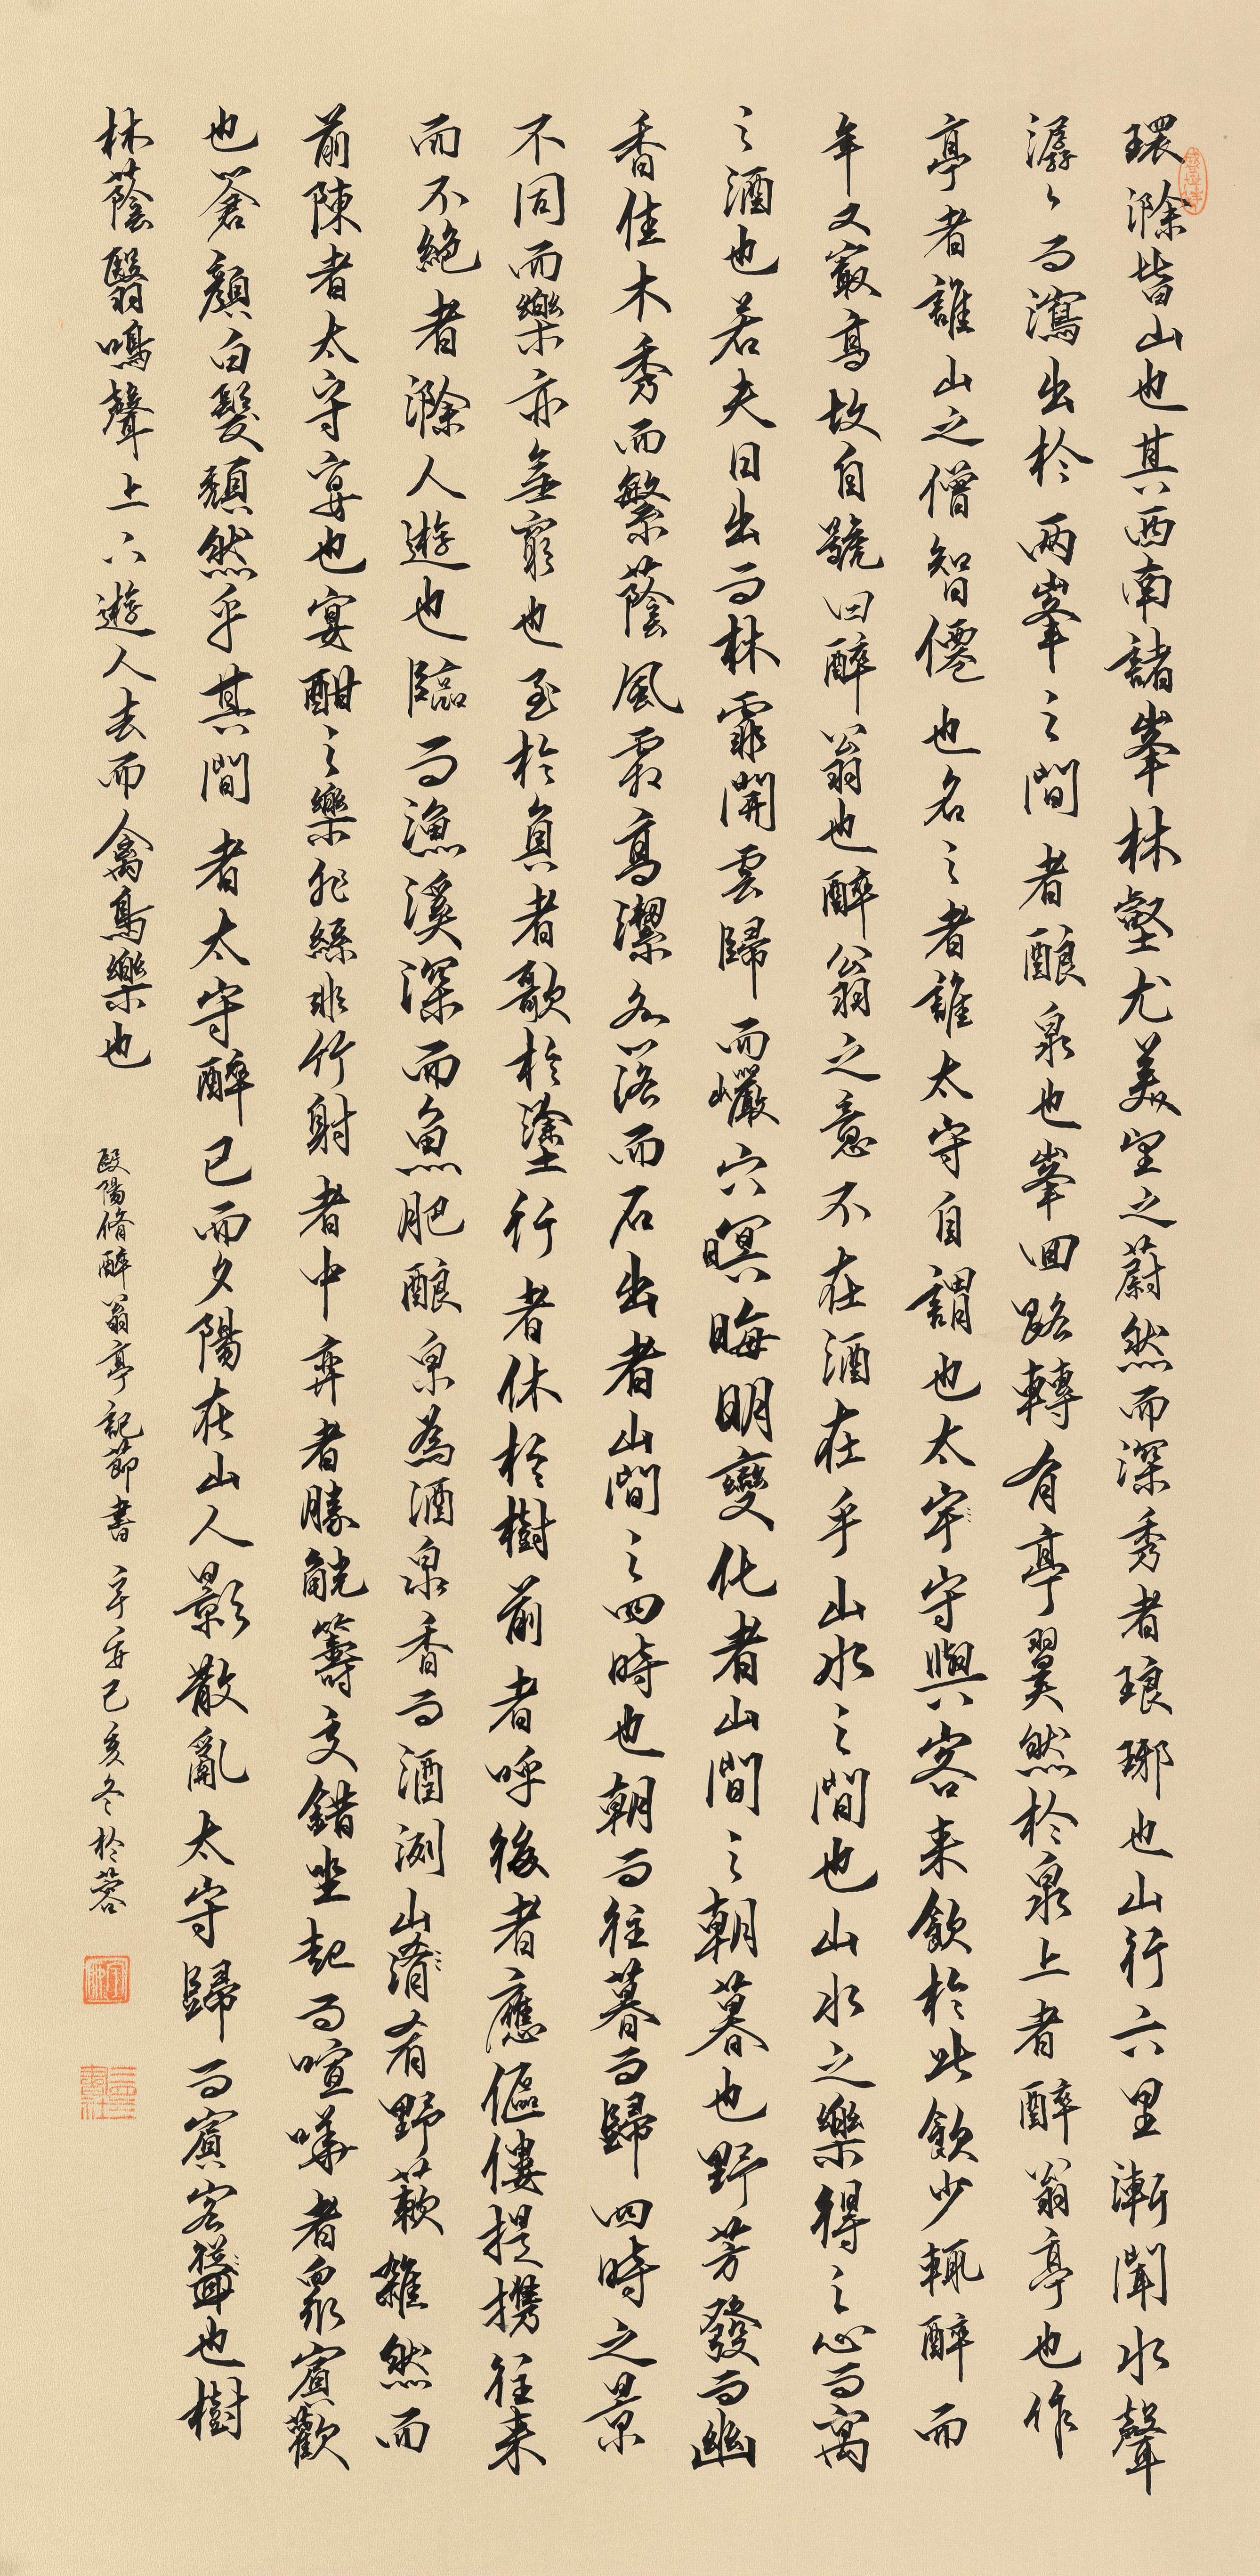 環滁皆山也其西南諸峯林壑尤美望之蔚然而深秀者琅琊也山行六里漸聞水聲
潺々而瀉出於兩峯之間者釀泉也峯回路轉有亭翼然於泉上者醉翁亭也作
亭者誰山之僧智僊也名之者誰太守自謂也太守與客来飲於此飲少輒醉而
年又最高故自號曰醉翁也醉翁之意不在酒在乎山水之間也山水之樂得之心而寓
之酒也若夫日出而林霏開雲歸而巖穴暝晦明變化者山間之朝暮也野芳發而幽
香佳木秀而繁蔭風霜高潔水落而石出者山間之四時也朝而往暮而歸四時之景
不同而樂亦無窮也至於負者歌於塗行者休於樹前者呼後者應傴僂提攜往来
而不絕者滁人遊也臨而漁溪深而魚肥釀泉為酒泉香而酒洌山肴野蔌雜然而
前陳者太守宴也宴酣之樂非絲非竹射者中弈者勝觥籌交錯坐起而喧嘩者眾賓歡
也蒼顏白髮頹然乎其間者太守醉已而夕陽在山人影散亂太守歸而賓客也樹
林蔭翳鳴聲上下遊人去而禽鳥樂也
歐陽脩醉翁亭記節書 己亥冬於蓉